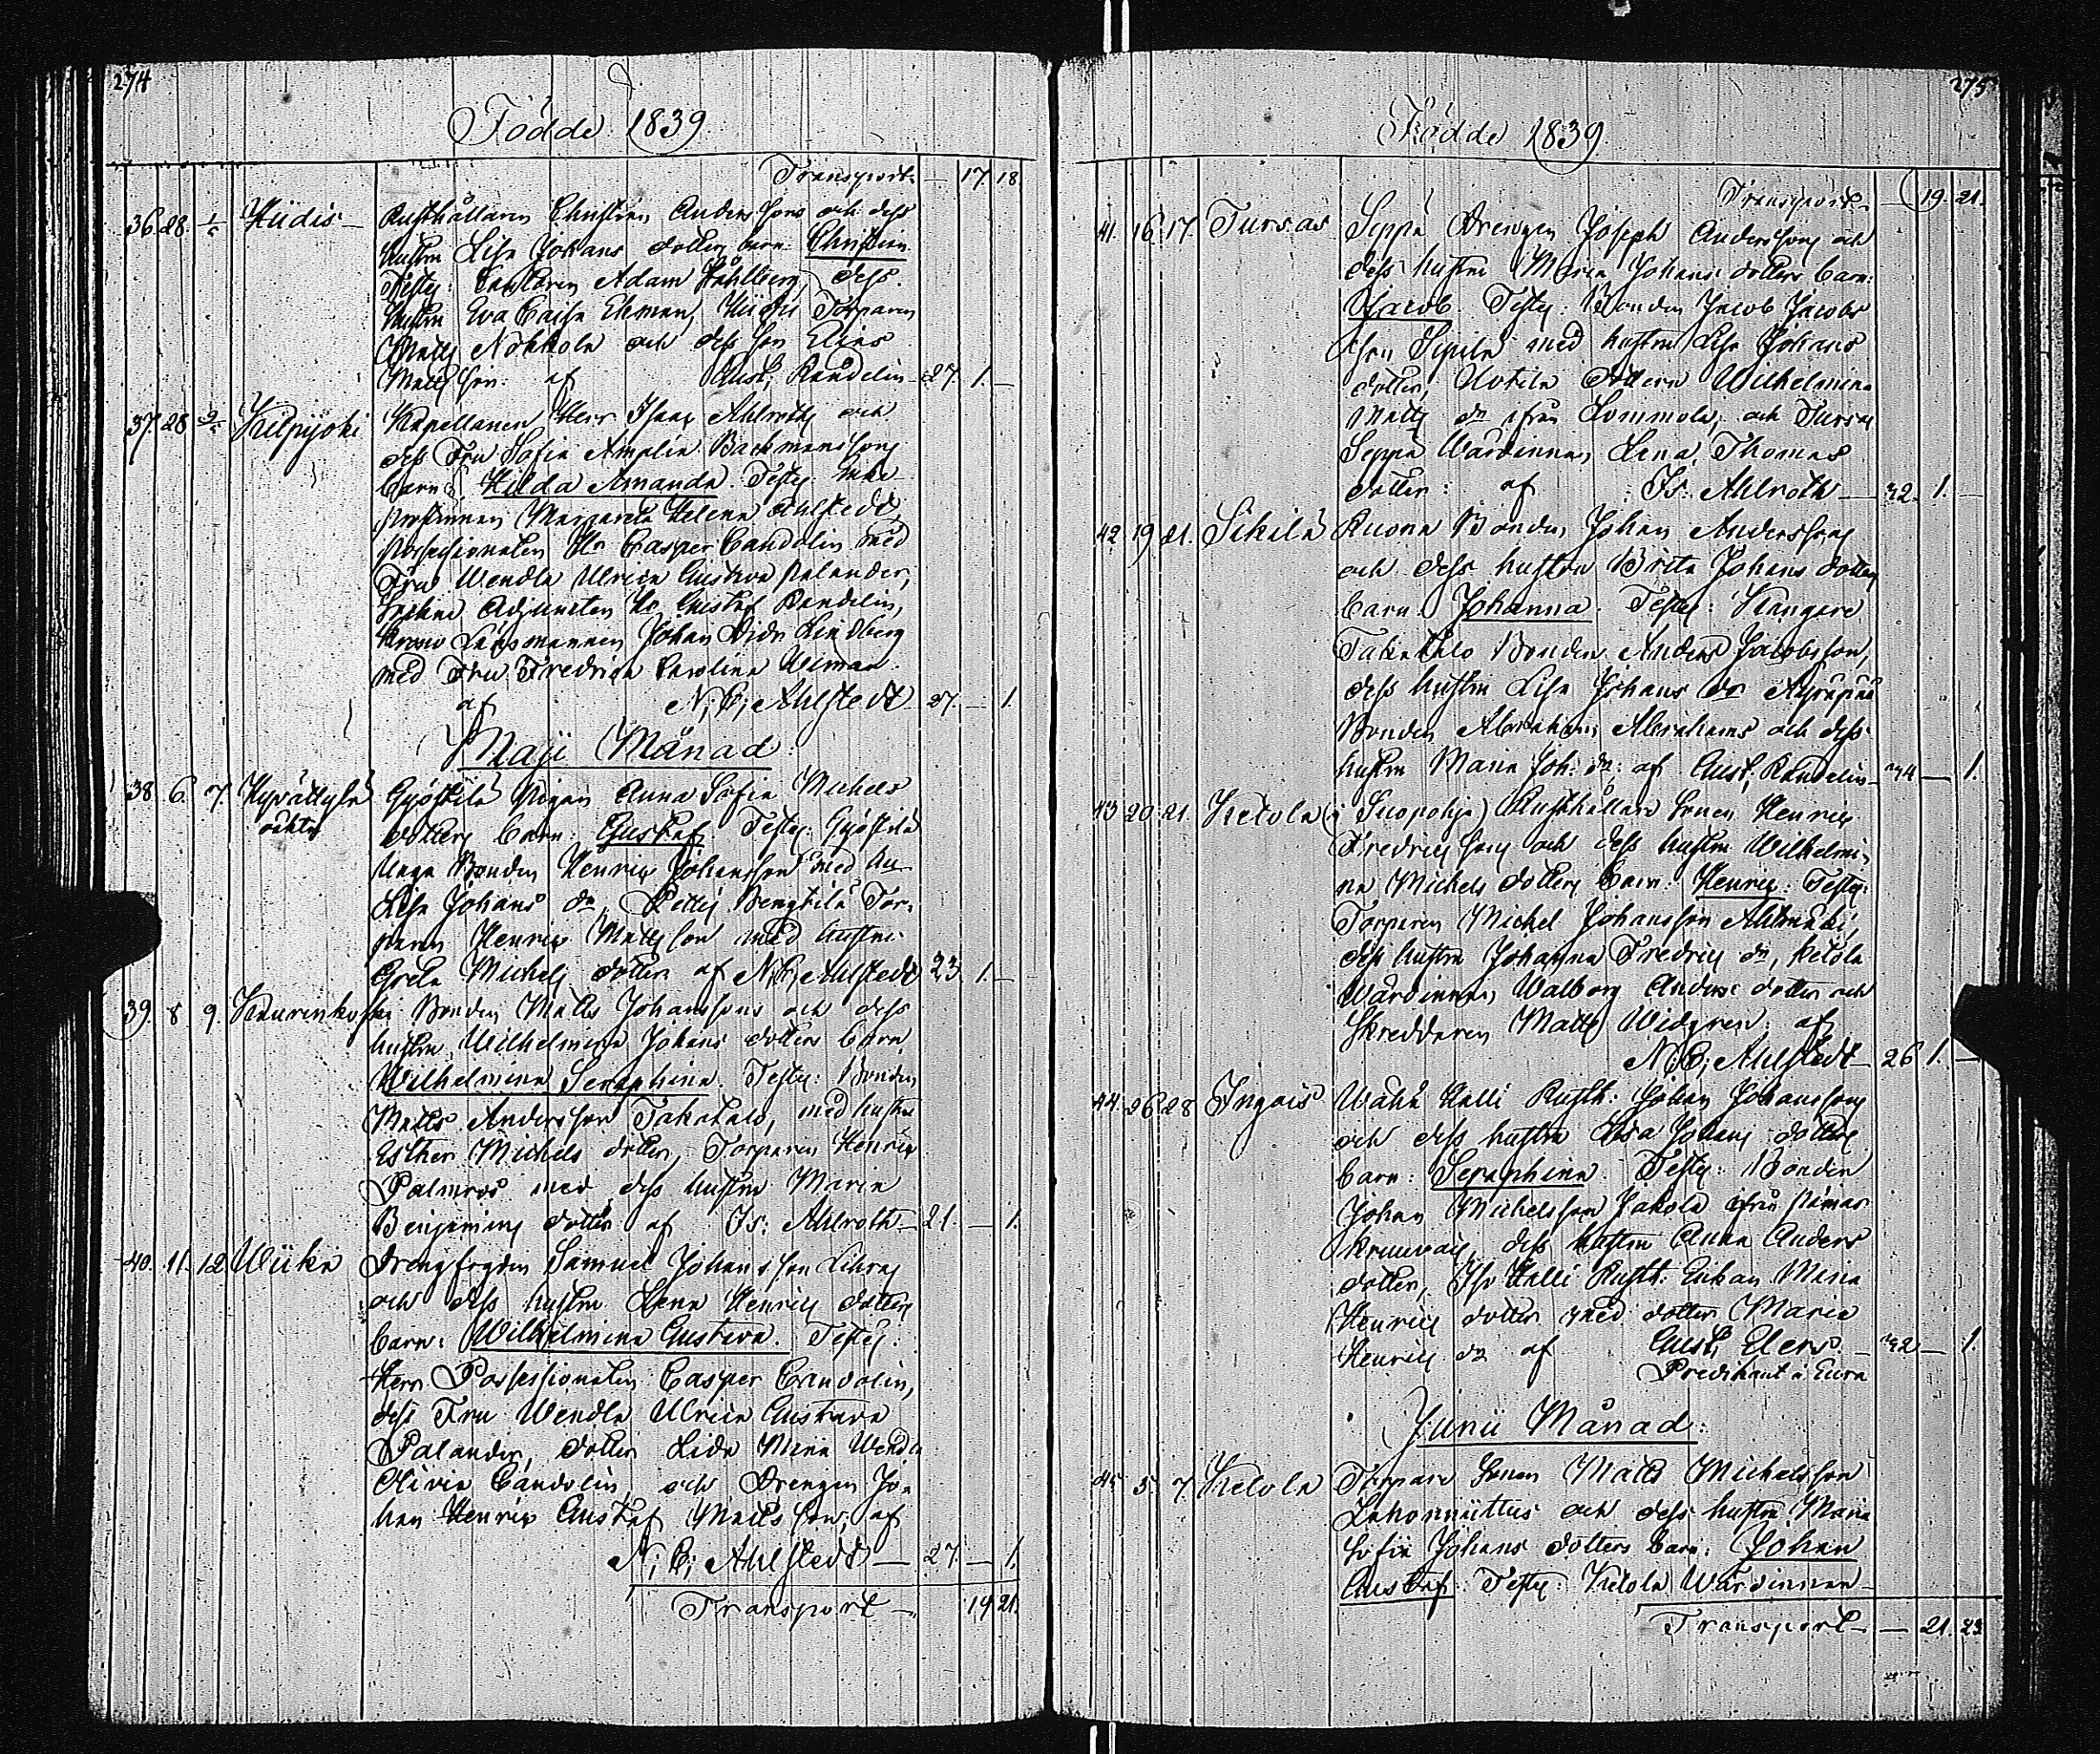 274
Födde 1839
Transport — 17. 18.
36. 28. 1/5 Hiidis — Rusthållaren Christian Anderssons och dess
hustru Lisa Johans dotters barn: Christian
Testes: Adam Dahlberg, dess
hustru Eva Caisa Ekman, Torparen
Matts Nohkola och dess son Elias
Mattsson: af Gust: Randelin — 27. 1. —
37. 28. 2/5 Kilpijoki Kapellanen Herr Isaac Ahlroths och
dess Fru Sofia Amalia Backmanssons
barn: Hilda Amanda. Testes:
Prostinnan Margareta Helena Ahlstedt,
Possessionaten Hr Casper Candolin med
Fru Wendla Ulrica Gustava Palander,
Adjuncten Hr Gustaf Randelin,
Krono Länsmannen Johan Lindberg
med Fru Fredrica Carolina Wiman.
af N; C; Ahlstedt 27. — 1.
Maji Månad
38. 6. 7. Hyvättylä Gyöstilä Pigan Anna Sofia Michels
dotters barn: Gustaf. Testes: Gyöstilä
Unga Bonden Henric Johansson med hu
Lisa Johans dr, Pettis Bengtilä Tor-
paren Henric Mattsson med hustru
Greta Michels dotter af N; C; Ahlstedt 23. 1. —
39. 8. 9. Kaurinkoski Bonden Matts Johanssons och dess
hustru Wilhelmina Johans dotters barn
Wilhelmina Seraphina. Testes: Bonden
Matts Andersson Takatalo, med hustru
Esther Michels dotter, Torparen Henric
Palmros med dess hustru Maria
Benjamins dotter af Is: Ahlroth — 21. — 1.
40. 11. 12. Wiika Drengfogden Samuel Johansson
och dess hustru Lena Henrics dotters
barn: Wilhelmina Gustava. Testes:
Herr Possessionaten Casper Candolin,
dess Fru Wendla Ulrica Gustava
Palander, dotter Lida Mina Wendla
Olivia Candolin, och Drengen Jo-
han Henric Gustaf Mattsson; af
N; C; Ahlstedt — 27. — 1.
Transport — 19. 21.
275
Födde 1839
Transport — 19. 21.
41. 16. 17. Tursas Seppä Drengen Joseph Anderssons och
dess hustru Maria Johans dotters barn:
Jacob. Testes: Bonden Jacob Jacobs
son Sipilä med hustru Lisa Johans
dotter, Uotila dottern Wilhelmina
Matts dr ifrån Lommola, och Tursas
Seppä Wärdinnan, Lena Thomas
dotter: af Is: Ahlroth — 32. 1. —
42. 19. 21. Sikilä Ruona Bonden Johan Anderssons
och dess hustru Brita Johans dotters
barn: Johanna. Testes: Kangare
Takatalo Bonden Anders Jacobsson,
dess hustru Lisa Johans dr Äyräpää
Bonden Abraham Abrahams och dess
hustru Maria Joh: dr: af Gust: Randelin — 34 — 1.
43. 20. 21. Ketola (i Suopohja) Rusthållare Sonen Henric
Fredricssons och dess hustru Wilhelmi-
na Michels dotters barn: Henric: Testes:
Torparen Michel Johansson Ahlmäki,
dess hustru Johanna Fredrics dr, Ketola
Wärdinnan, Walborg Anders dotter och
Skreddaren Matts Widgren: af
N: C; Ahlstedt — 26. 1. —
44. 26. 28. Ingois Wähä Halli Rusth: Johan Johanssons
och dess hustru Lisa Johans dotters
barn: Seraphina. Testes: Bonden
Johan Michelsson Jakola ifrån Pämar
dess hustru Anna Anders
dotter, Iso Halli Rusth: Enkan Maria
Henrics dotter med dotter Maria
Henrics dr af Gust: Elers. — 32 — 1.
Predikant i Eura
Junii Månad:
45. 5. 7. Ketola Torpare Sonen Matts Michelsson
Lahonniittus och dess hustru Maria
Sofia Johans dotters barn: Johan
Gustaf: Testes: Ketola Wärdinnan —
Transport — 21. 23.